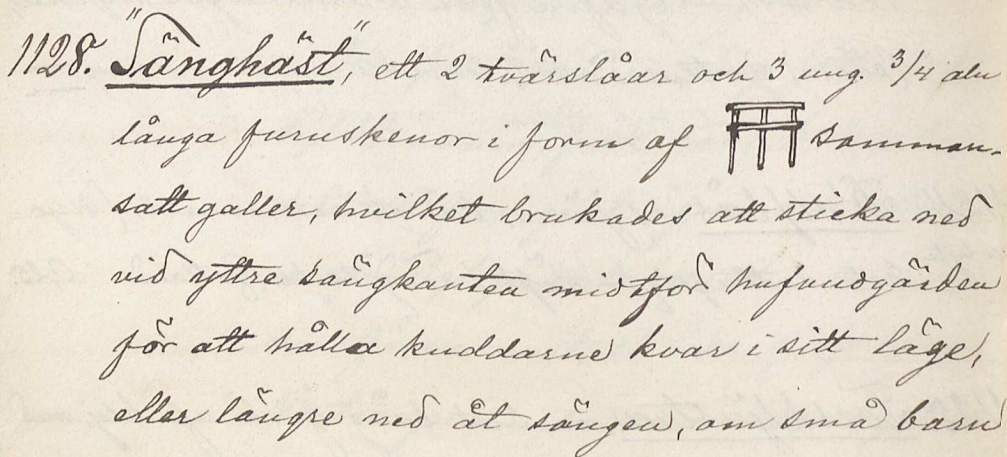 1128. "Sänghäst", ett 2 tvärslåar och 3 ung. 3/4 aln
långa furuskenor i form af samman-
satt galler, hvilket brukades att sticka ned
vid yttre sängkanten midtför hufvudgärden
för att hålla kuddarne kvar i sitt läge,
eller längre ned åt sängen, om små barn